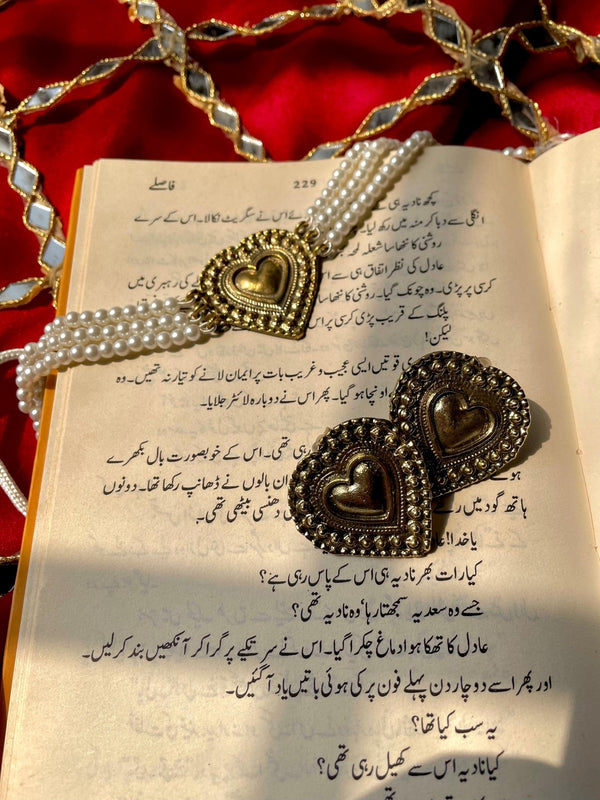 فاصلے 229
کچھ نادیہ ہی کے
ائے اس نے سگریٹ نکالا۔ اس کے سرے
انگلی سے دبا کر منہ میں رکھ لیا۔
روشنی کا ننھا سا شعلہ لمحہ
عادل کی نظر اتفاق ہی سے اس
کرسی پر پڑی۔ وہ چونک گیا۔ روشنی کا ننھا سا کی رہبری میں
پلنگ کے قریب پڑی کرسی پر اس
لیکن!
قوتیں ایسی عجیب و غریب بات پر ایمان لانے کو تیار نہ تھیں۔ وہ
اونچا ہو گیا۔ پھر اس نے دوبارہ لائٹر جلایا۔
رہی تھی۔ اس کے خوبصورت بال بکھرے
ہوئے ان بالوں نے ڈھانپ رکھا تھا۔ دونوں
ہاتھ گود میں دھنسی بیٹھی تھی۔
یا خدا!
کیا رات بھر نادیہ ہی اس کے پاس رہی ہے؟
جسے وہ سعدیہ سمجھتا رہا' وہ نادیہ تھی؟
عادل کا تھکا ہوا دماغ چکرا گیا۔ اس نے سر تکیے پر گرا کر آنکھیں بند کر لیں۔
اور پھر اسے دو چار دن پہلے فون پر کی ہوئی باتیں یاد آ گئیں۔
یہ سب کیا تھا؟
کیا نادیہ اس سے کھیل رہی تھی؟